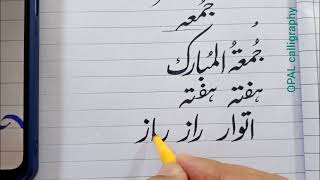 جُمعہ
جُمعۃُ المُبارک
ہفتہ ہفتہ
اتوار راز راز
OPAL calligraphy